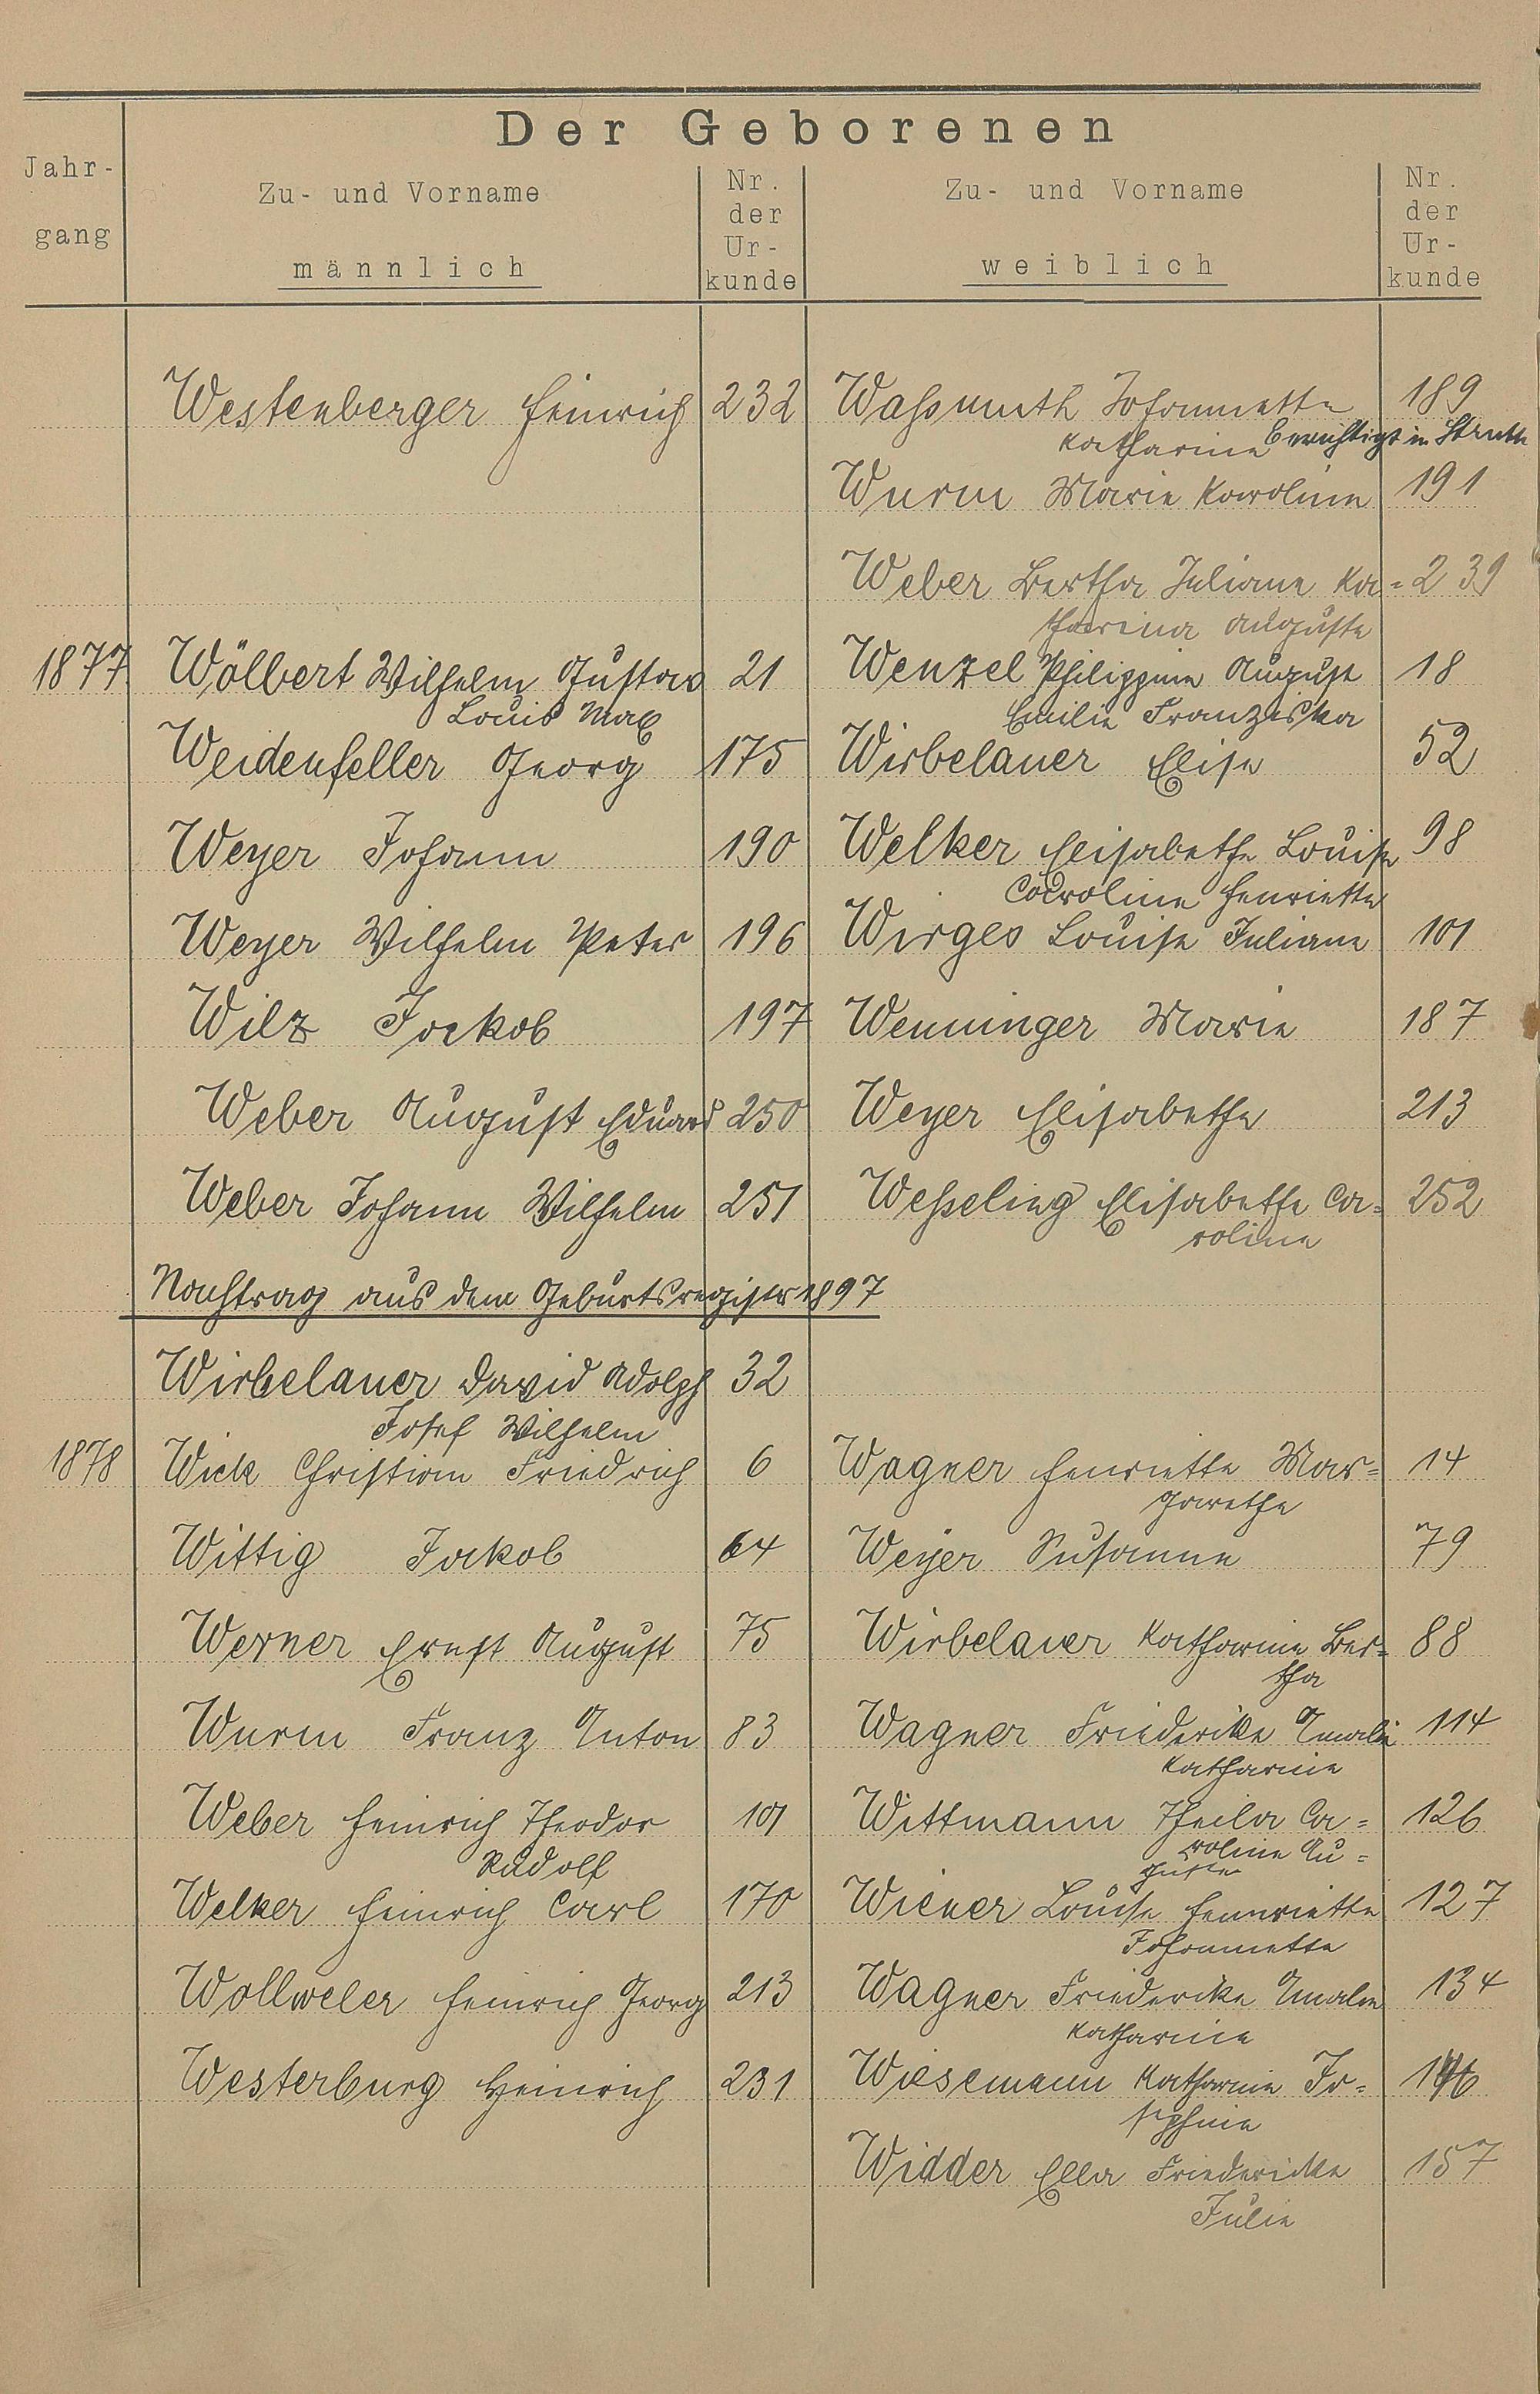 Der Geborenen
Jahr-
gang
Zu- und Vorname
männlich
Nr.
der
Ur-
kunde
Zu- und Vorname
weiblich
Nr.
der
Ur-
kunde
Westenberger Heinrich 232 Waßmuth Johannette 189
Katharine berichtigt in
Wurm Marie Karoline 191
Weber Bertha Juliane Ka= 239
tharina Auguste
1877 Wölbert Wilhelm Gustav 21 Wenzel Philippine August 18
Louis Max Emilie Franziska
Weidenfeller Georg 175 Wirbelauer Elise 52
Weyer Johann 190 Welker Elisabethe Louise 98
Caroline Henriette
Weyer Wilhelm Peter 196 Wirges Louise Juliane 101
Wilz Jackob 197 Wenninger Marie 187
Weber August Eduard 250 Weyer Elisabethe 213
Weber Johann Wilhelm 251 Weßeling Elisabethe Ca= 252
roline
Nachtrag aus dem Geburtsregister 1897
Wirbelauer David Adolph 32
Josef Wilhelm
1878 Wick Christian Friedrich 6 Wagner Henriette Mar= 14
garethe
Wittig Jakob 64 Weyer Susanne 79
Werner Ernst August 75 Wirbelauer Katharine Ber= 88
tha
Wurm Franz Anton 83 Wagner Friederike Amalie 114
Katharine
Weber Heinrich Theodor 101 Wittmann Theila Ca= 126
Rudolf roline Au=
guste
Welker Heinrich Carl 170 Wiener Louise Hennriette 127
Johannette
Wollweler Heinrich Georg 213 Wagner Friedericke Amalie 134
Katharine
Westerburg Heinrich 231 Wiesemann Katharine Jo= 146
sephine
Widder Ella Friedericke 157
Julie